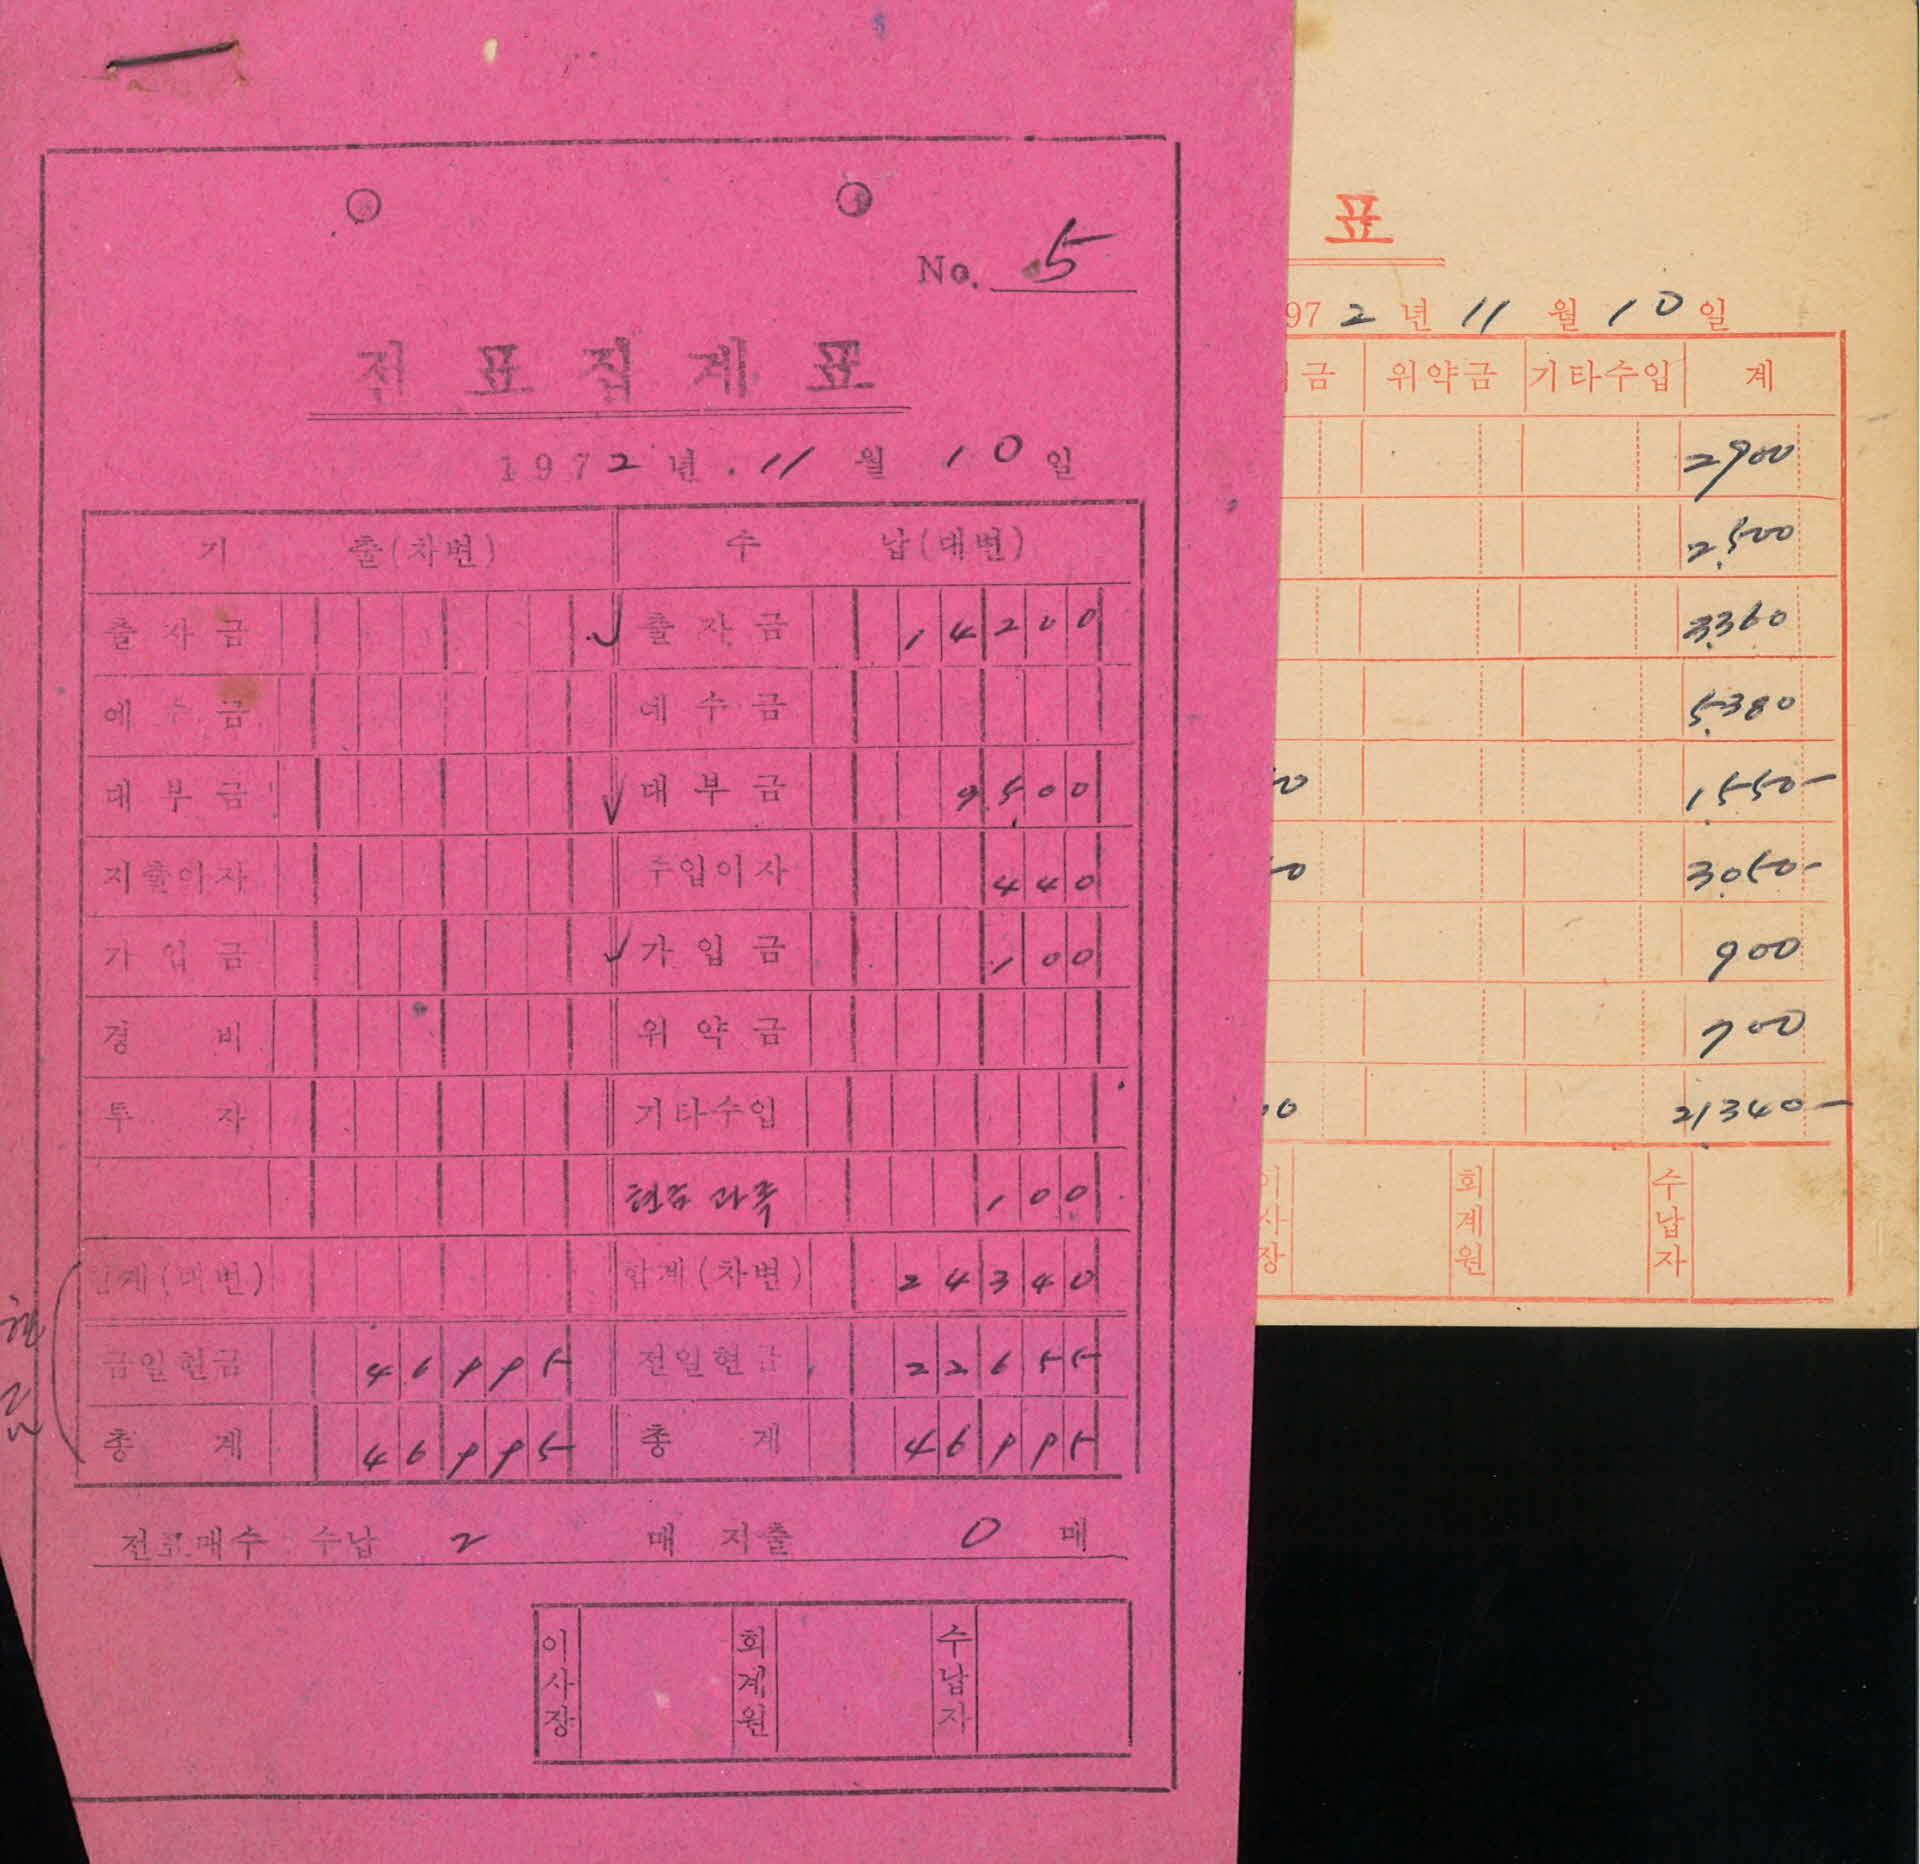 No. 5
전표집계표
1972년 11월 10일
기 출(차변) 수 납(대변)
출자금 출자금 14200
예수금 예수금
대부금 대부금 9500
지출이자 수입이자 440
가입금 가입금 100
경비 위약금
투자 기타수입
현금 과부족 100
합계(대변) 합계(차변) 24340
현금
금일현금 46995 전일현금 22655
총계 46995 총계 46995
전표매수 수납 2 매 지출 0 매
이사장 회계원 수납자
표
972년 11월 10일
금 위약금 기타수입 계
2900
2500
3360
5380
0 1550-
0 3050-
900
700
00 21340-
이사장 회계원 수납자